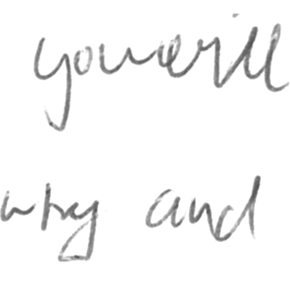 you will
why and